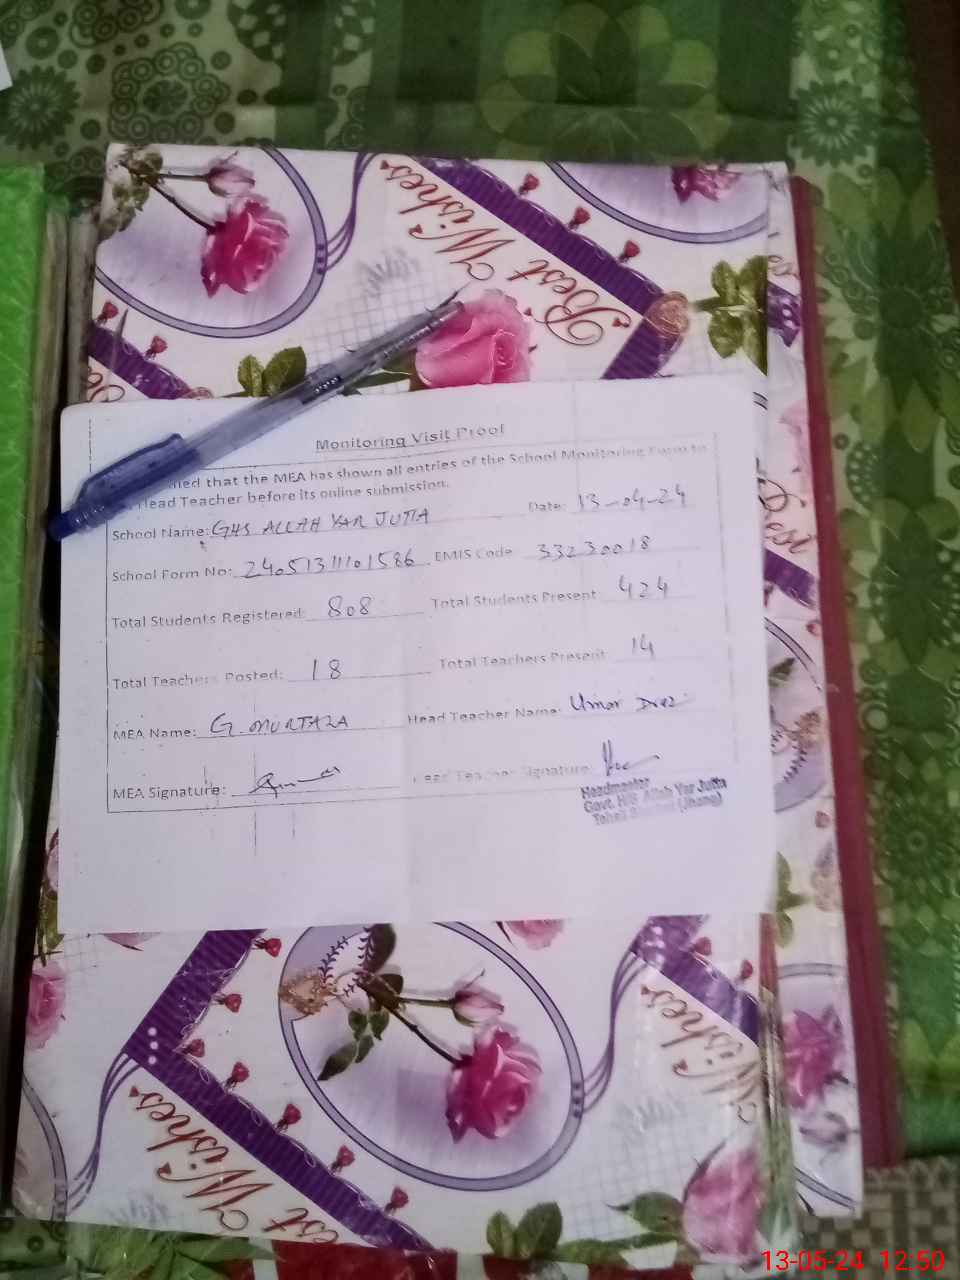 Best Wishes
Monitoring Visit Proof
that the MEA has shown all entries of the School Monitoring Form to
Head Teacher before its online submission.
School Name: GHS ALLAH YAR JUTTA Date: 13-04-24
School Form No: 2405131101586 EMIS Code 33230018
Total Students Registered: 808 Total Students Present: 424
Total Teachers Posted: 18 Total Teachers Present 14
MEA Name: G. MURTAZA Head Teacher Name: Umar
MEA Signature: Head Teacher Signature:
Headmaster
Govt. H/S Allah Yar Jutta
(Jhang)
Wishes
Wishes
Best
13-05-24 12:50